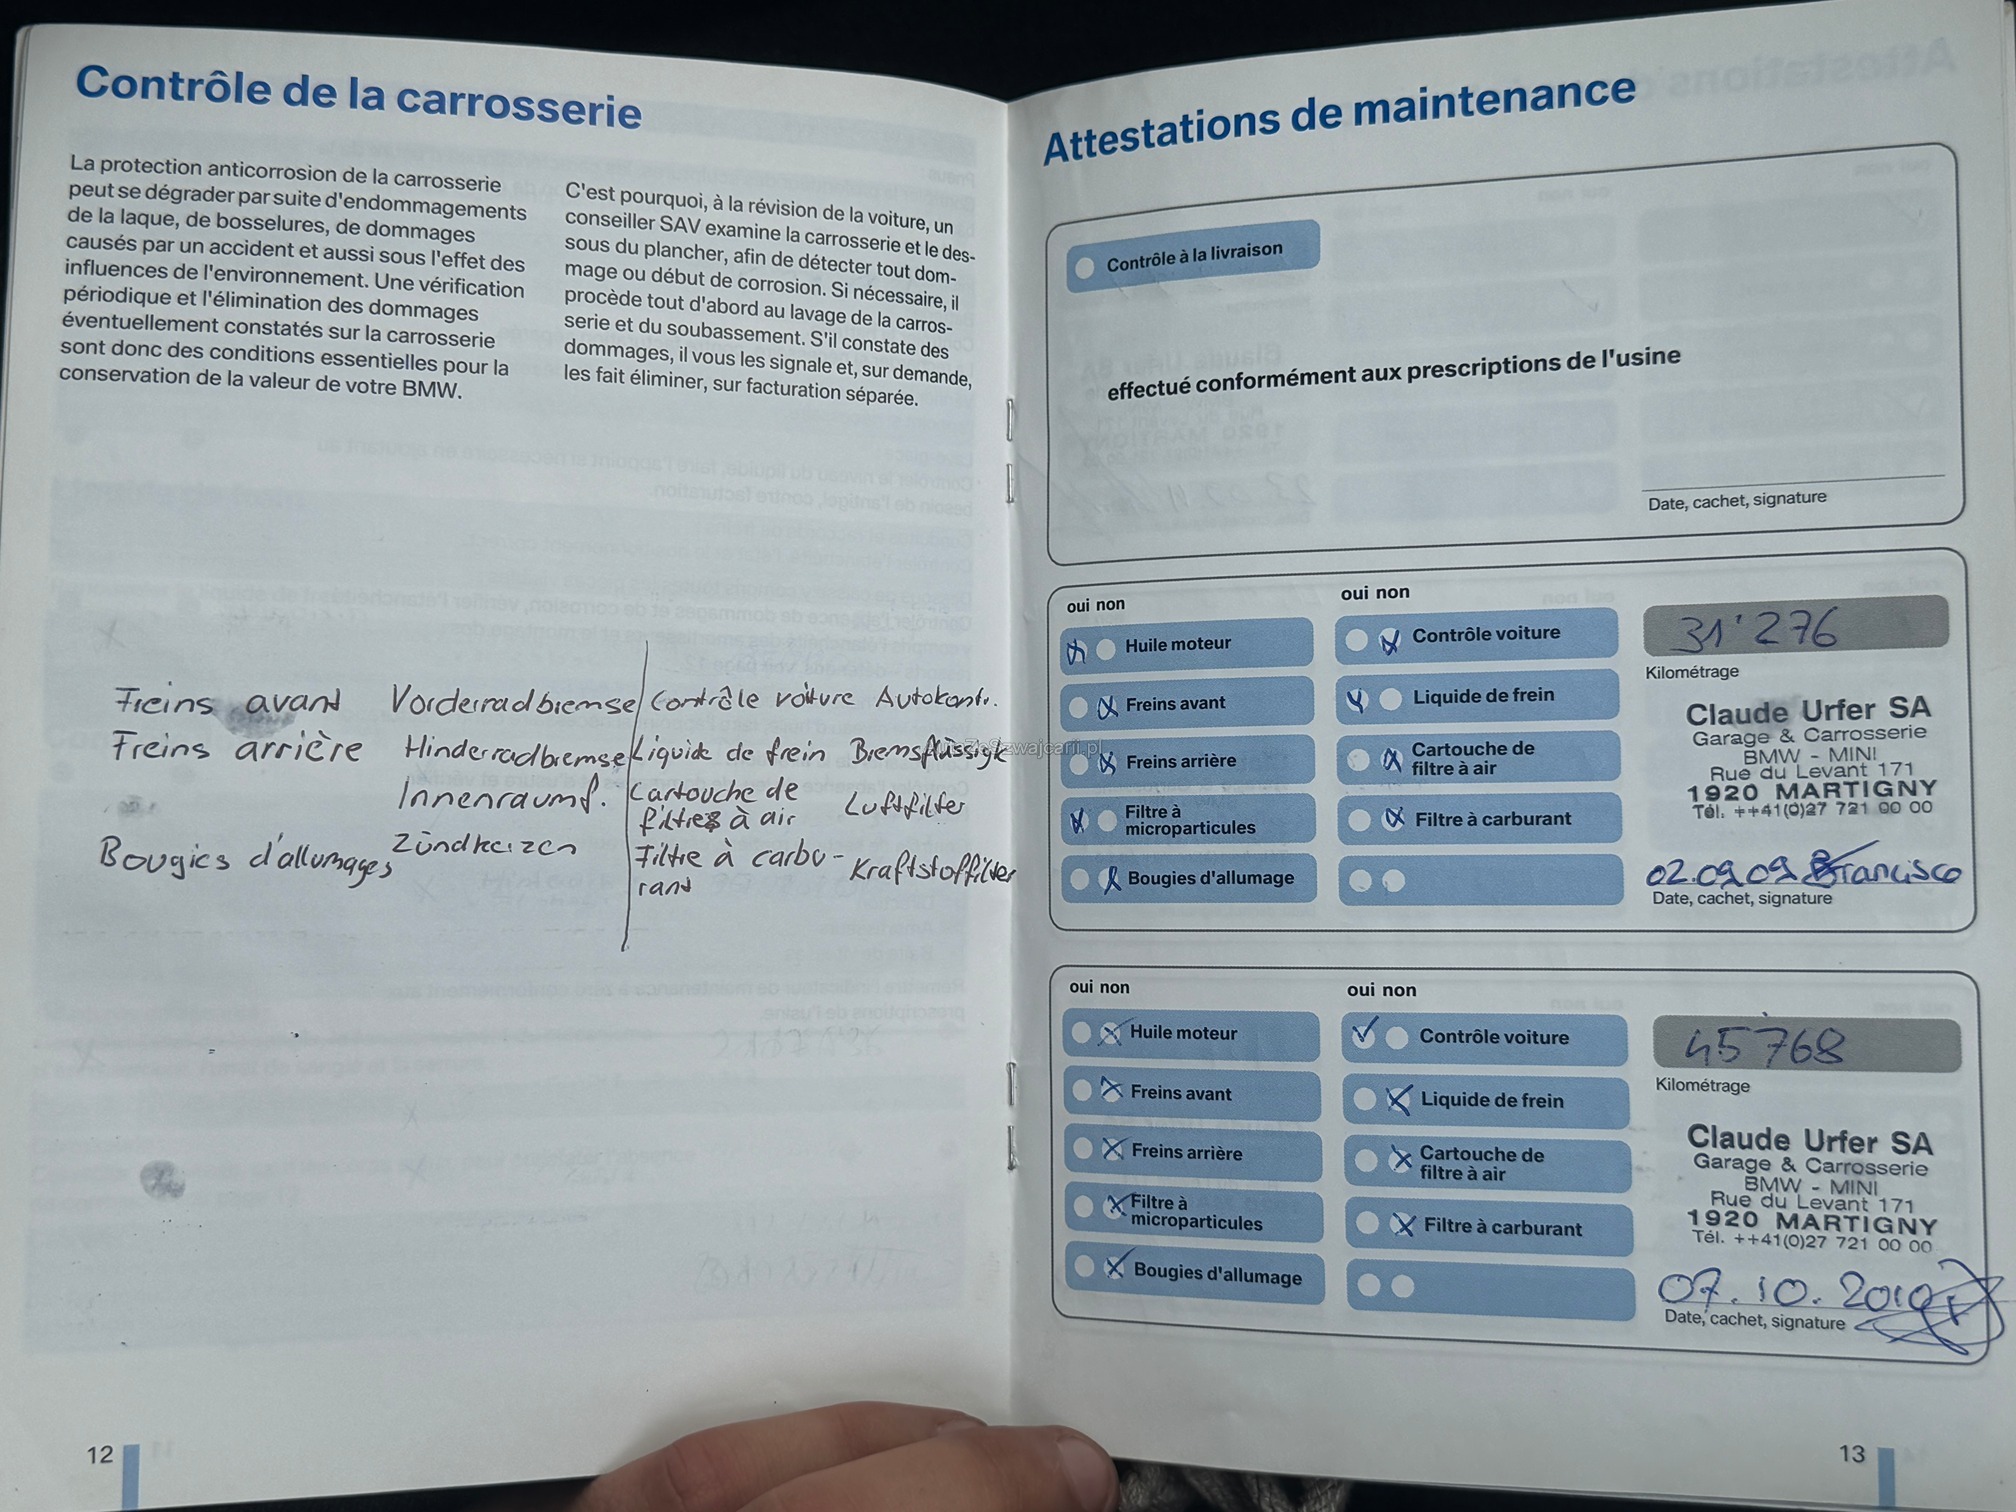 Contrôle de la carrosserie
La protection anticorrosion de la carrosserie
peut se dégrader par suite d'endommagements
de la laque, de bosselures, de dommages
causés par un accident et aussi sous l'effet des
influences de l'environnement. Une vérification
périodique et l'élimination des dommages
éventuellement constatés sur la carrosserie
sont donc des conditions essentielles pour la
conservation de la valeur de votre BMW.
C'est pourquoi, à la révision de la voiture, un
conseiller SAV examine la carrosserie et le des-
sous du plancher, afin de détecter tout dom-
mage ou début de corrosion. Si nécessaire, il
procède tout d'abord au lavage de la carros-
serie et du soubassement. S'il constate des
dommages, il vous les signale et, sur demande,
les fait éliminer, sur facturation séparée.
Freins avant Vorderradbremse
Freins arrière Hinderradbremse
Innenraumf.
Bougies d'allumages Zündkerzen
Contrôle voiture Autokontr.
Liquide de frein Bremsflüssigk
Cartouche de
filtres à air Luftfilter
Filtre à carbu- Kraftstoffilter
rant
AutoZeSzwajcarii.pl
12
Attestations de maintenance
Contrôle à la livraison
effectué conformément aux prescriptions de l'usine
Date, cachet, signature
oui non
Huile moteur
Freins avant
Freins arrière
Filtre à
microparticules
Bougies d'allumage
oui non
Contrôle voiture
Liquide de frein
Cartouche de
filtre à air
Filtre à carburant
31'276
Kilométrage
Claude Urfer SA
Garage & Carrosserie
BMW - MINI
Rue du Levant 171
1920 MARTIGNY
Tél. ++41(0)27 721 00 00
02.09.09 Francisco
Date, cachet, signature
oui non
Huile moteur
Freins avant
Freins arrière
Filtre à
microparticules
Bougies d'allumage
oui non
Contrôle voiture
Liquide de frein
Cartouche de
filtre à air
Filtre à carburant
45'768
Kilométrage
Claude Urfer SA
Garage & Carrosserie
BMW - MINI
Rue du Levant 171
1920 MARTIGNY
Tél. ++41(0)27 721 00 00
07.10.2010
Date, cachet, signature
13